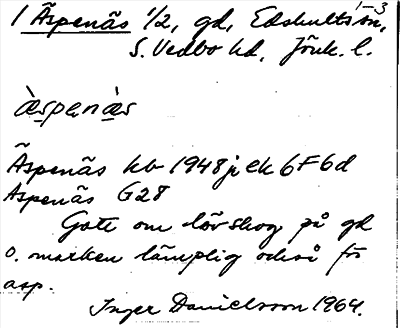 1-3
1 Äspenäs 1/2, gd, Edshults sn,
S. Vedbo hd, Jönk. l.
àspenàs
Äspenäs kb 1948 j ek 6F6d
Äspenäs G28
Gott om lövskog på gd
o. marken lämplig också för
asp.
Inger Danielsson 1964.